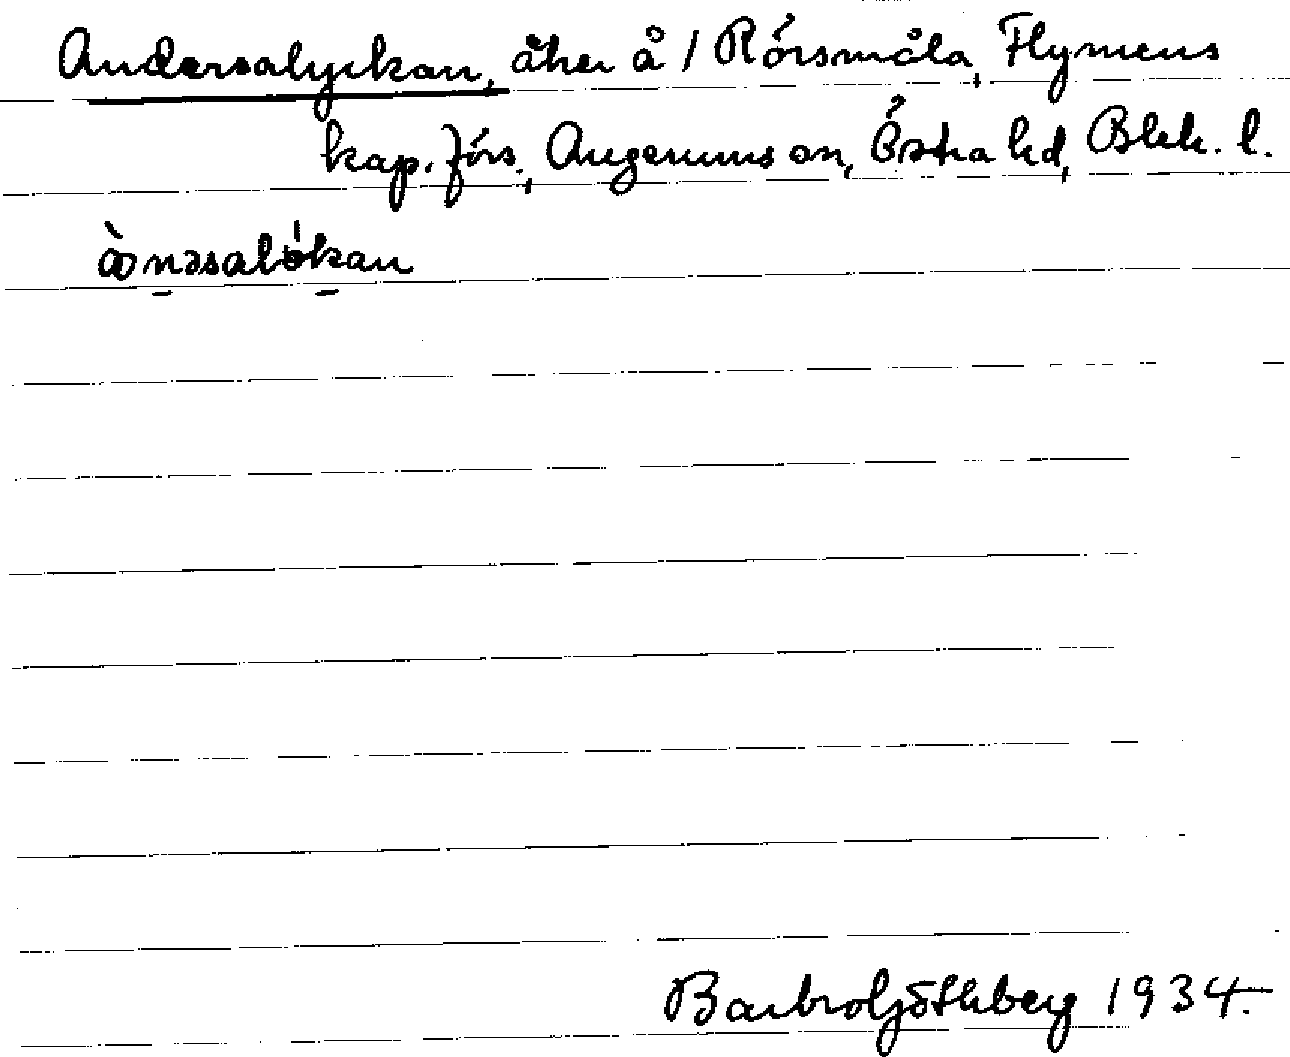 Andersalyckan, åker å 1 Rörsmåla, Flymens
kap. förs., Augerums sn, Östra hd, Blek. l.
ànəsalykan
Barbro Götheberg 1934.